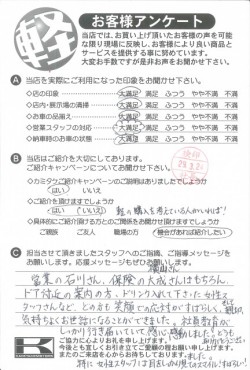 軽
お客様アンケート
当店では、お買い上げ頂いたお客様の声を可能
な限り現場に反映し、お客様により良い商品と
サービスを提供する事に努めています。
大変お手数ですが是非お声をお聞かせ下さい。
A 当店を実際にご利用になった印象をお聞かせ下さい。
◇店の印象 大満足 満足 ふつう やや不満 不満
◇店内・展示場の清掃 大満足 満足 ふつう やや不満 不満
◇お車の品揃え 大満足 満足 ふつう やや不満 不満
◇営業スタッフの対応 大満足 満足 ふつう やや不満 不満
◇納車時のお車の状態 大満足 満足 ふつう やや不満 不満
B 当店はご紹介を大切にしております。
ご紹介キャンペーンについてお聞かせ下さい。
◇カミタケご紹介キャンペーンのご説明はありましたでしょうか
はい いいえ
◇ご紹介を頂けますでしょうか
はい いいえ 軽の購入を考えている人がいれば!
◇具体的にご紹介頂ける方のご関係をお聞かせ頂けますでしょうか
ご親族 ご友人 職場の方 機会があれば紹介したい
C 担当させて頂きましたスタッフへのご指摘、ご指導メッセージを
お願いします。応援メッセージもぜひお願いします。
横山さん
営業の石川さん、保険の大成さんはもちろん、
ドア付近の案内の方、ドリンク入れて下さった女性ス
タッフさんなど、どの方も笑顔での応対がすばらしく、
気持ちよくお世話になることができました。社員教育が
しっかり行き届いていて感じ
ご協力に心よりお礼を申し上げます。
今後とも変わらぬお引き立てご愛顧の程お願い申し上げます。
またのご来店を心からお待ちしております。
特に女性スタッフ